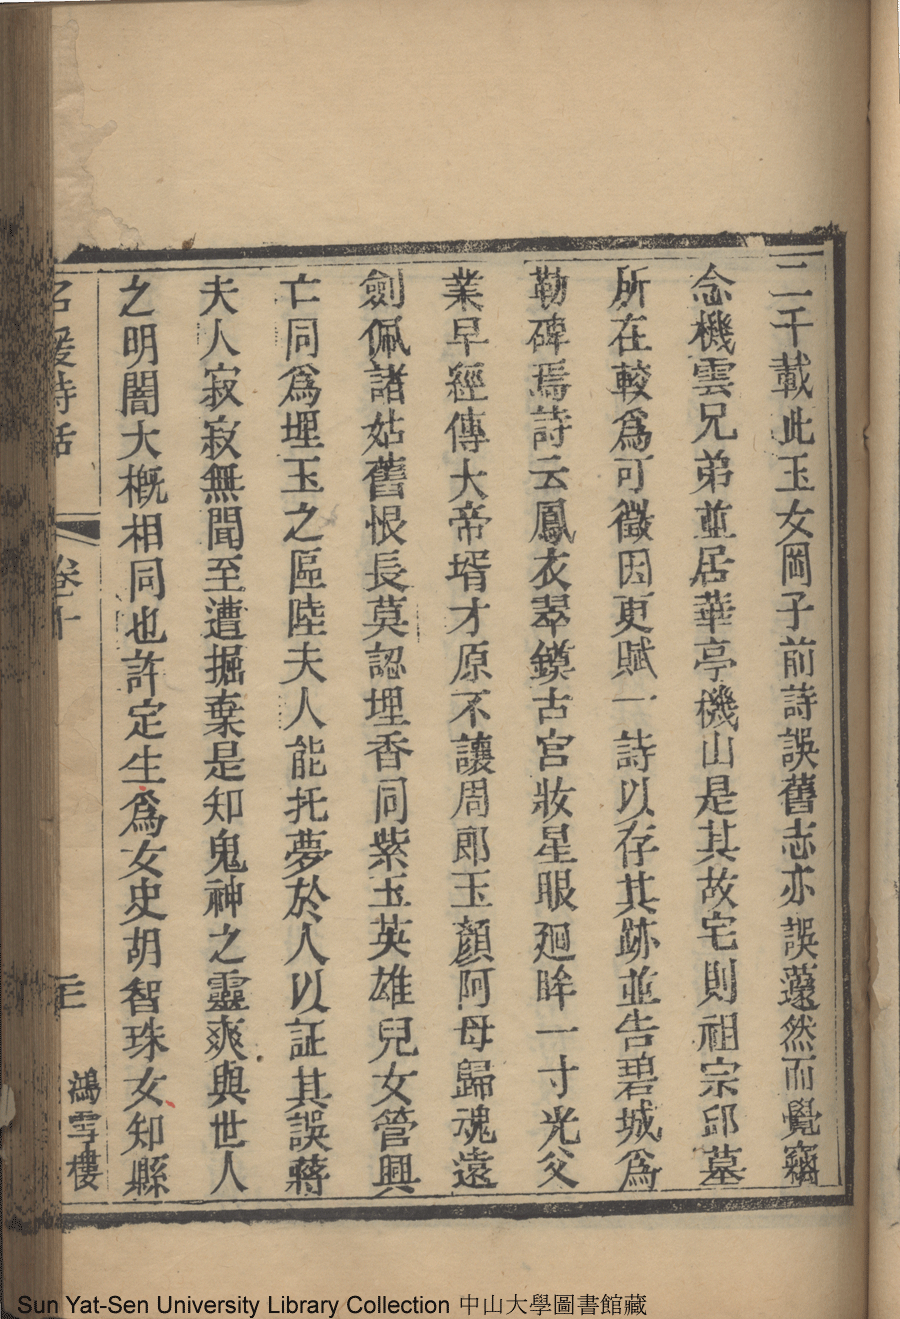 二千載此玉女岡子前詩誤舊志亦誤蘧然而覺竊
念機雲兄弟並居華亭機山是其故宅則祖宗邱墓
所在較爲可徵因更賦一詩以存其跡並告碧城爲
勒碑焉詩云鳳衣翠鏌古宮妝星眼廻眸一寸光父
業早經傳大帝壻才原不讓周郎玉顏阿母歸魂遠
劍佩諸姑舊恨長莫認埋香同紫玉英雄兒女管興
亡同爲埋玉之區陸夫人能托夢於人以証其誤蔣
夫人寂寂無聞至遭掘棄是知鬼神之靈爽與世人
之明闇大概相同也許定生爲女史胡智珠女知縣
名媛詩話
卷十
三
鴻雪樓
Sun Yat-Sen University Library Collection 中山大學圖書館藏